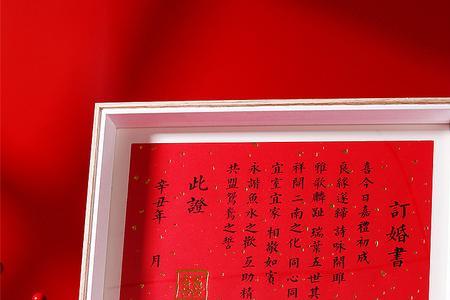 訂婚書
喜今日嘉禮初成
良緣遂締詩詠關雎
雅歌麟趾瑞葉五世其
祥開二南之化同心同
宜室宜家相敬如賓
永諧魚水之歡互助精
共盟鴛鴦之誓
此證
辛丑年 月